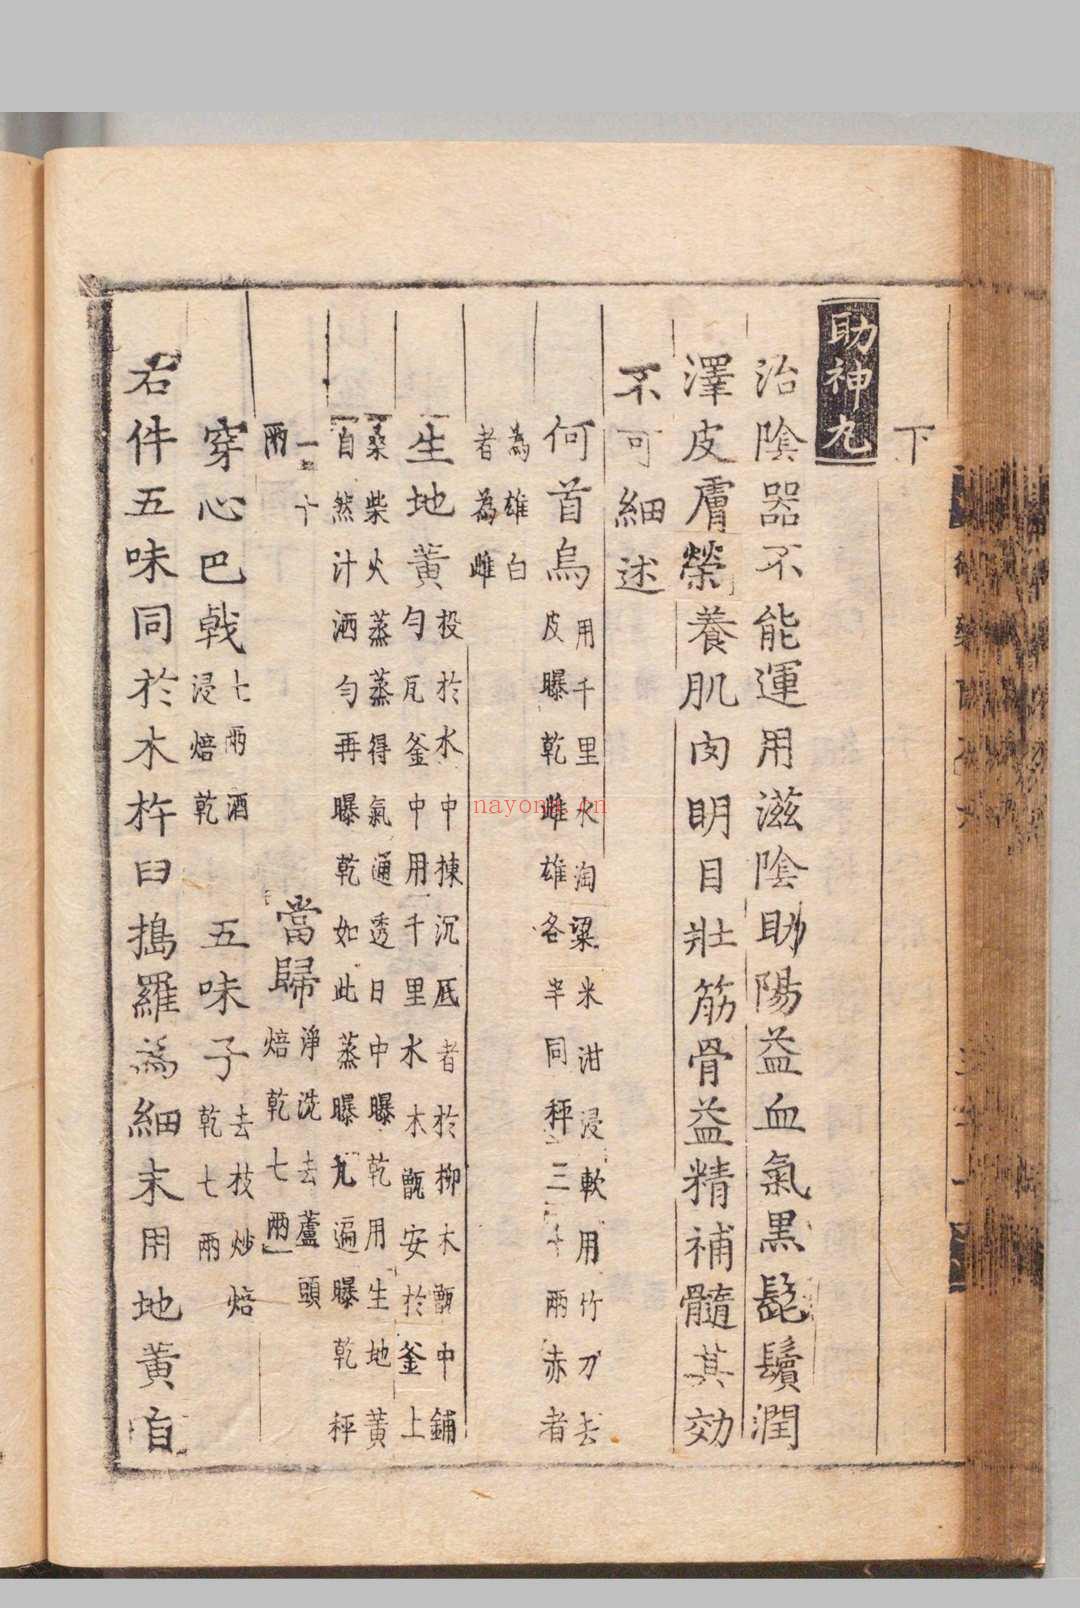 下
助神丸
治陰器不能運用滋陰助陽益血氣黑髭鬢潤
澤皮膚榮養肌肉明目壯筋骨益精補髓其効
不可細述
何首烏
用千里水淘粱米泔浸軟用竹刀去
皮曝乾雌雄各半同秤三十兩赤者
為雄白
者為雌
生地黃
投於水中揀沉底者於柳木甑中鋪
勻瓦釜中用千里水木甑安於釜上
桑柴火蒸蒸得氣通透日中曝乾用生地黃
自然汁洒勻再曝乾如此蒸曝九遍曝乾秤
一十
兩
當歸
淨洗去蘆頭
焙乾七兩
穿心巴戟
七兩酒
浸焙乾
五味子
去枝炒焙
乾七兩
右件五味同於木杵臼搗羅為細末用地黃自
nayona.cn